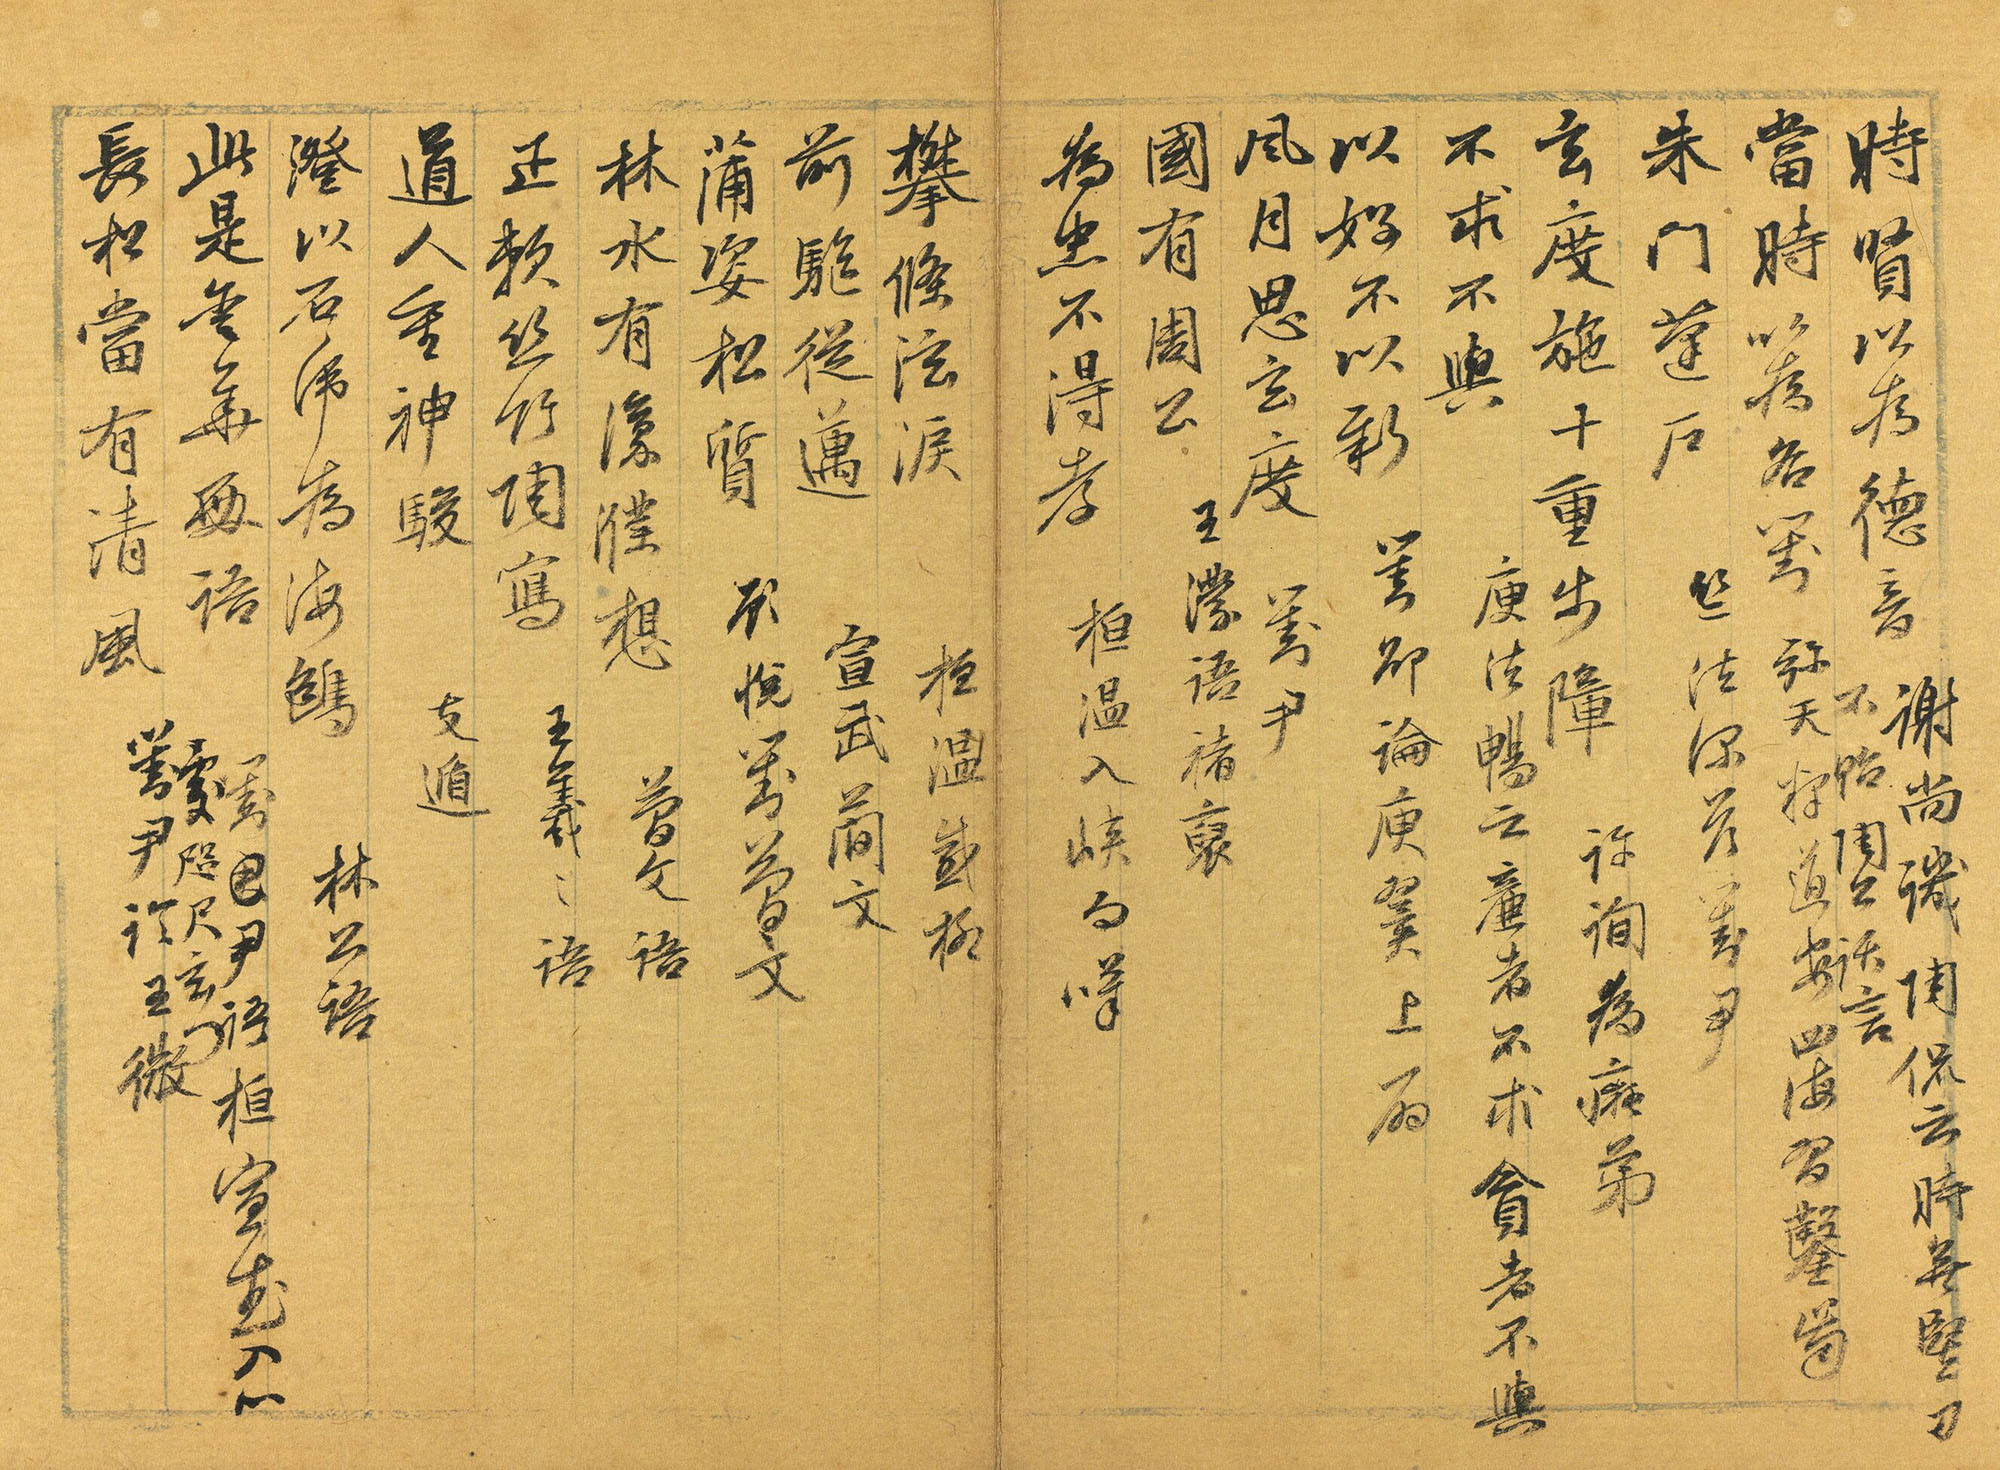 時賢以為德音 謝尚譏陶侃云時無豎刁
不貽陶公話言
當時以為名對 弥天釋道安四海習鑿齒
朱門蓬戶 竺法深荅劉尹
玄度施十重步障 許詢為癡弟
不求不與 庾法暢云廉者不求貪者不與
以好不以新 劉卲論庾翼上扇
風月思玄度 劉尹
國有周公 王濛語褚裒
為忠不得孝 桓溫入峽句嘆
攀條泫淚 桓溫感柳
前驅從邁 宣武簡文
蒲姿松質 顧悅對簡文
林水有濠濮想 簡文語
正賴絲竹陶寫 王羲之語
道人重神駿 支遁
澄以石虎為海鷗 林公語
此是金華殿語 劉尹語桓宣武入心
處咫尺玄門
長松當有清風 劉尹許王微